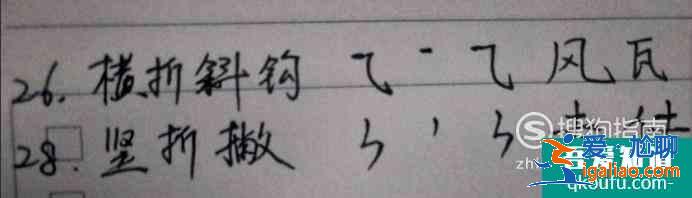 26. 横折斜钩 ⺄ ㇀ ⺄ 风 瓦
28. 竖折撇 ㄣ 丨 ㄣ
搜狗指南
爱尴聊
igalliao.com
qkoufu.com